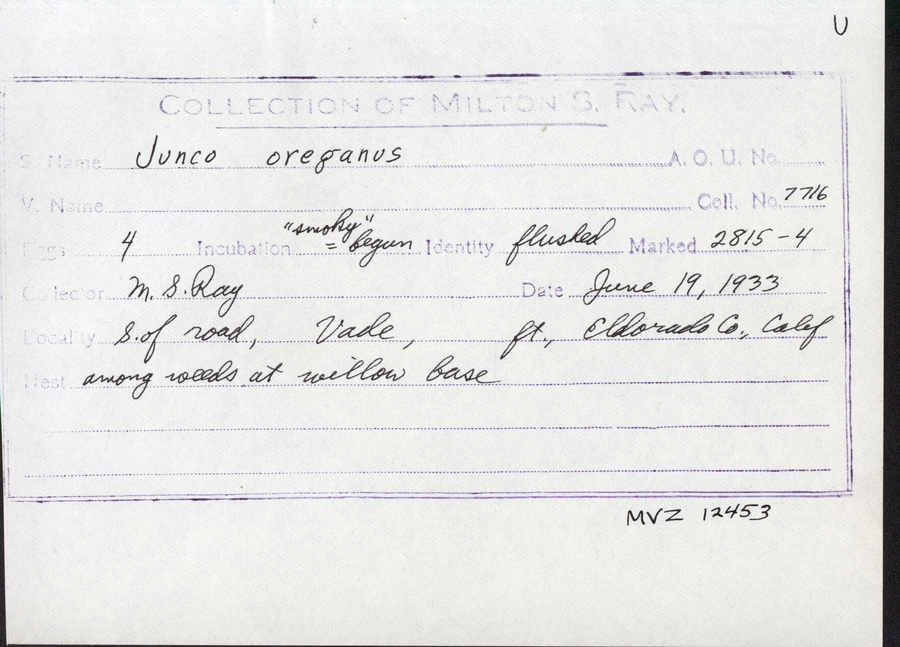 U
COLLECTION OF MILTON S. RAY.
S. Name Junco oreganus A. O. U. No.
V. Name Coll. No. 7716
Eggs 4 Incubation "smoky" = begun Identity flushed Marked 2815-4
Collector M. S. Ray Date June 19, 1933
Locality S. of road, Vade, ft., Eldorado Co., Calif
Nest among weeds at willow base
MVZ 12453